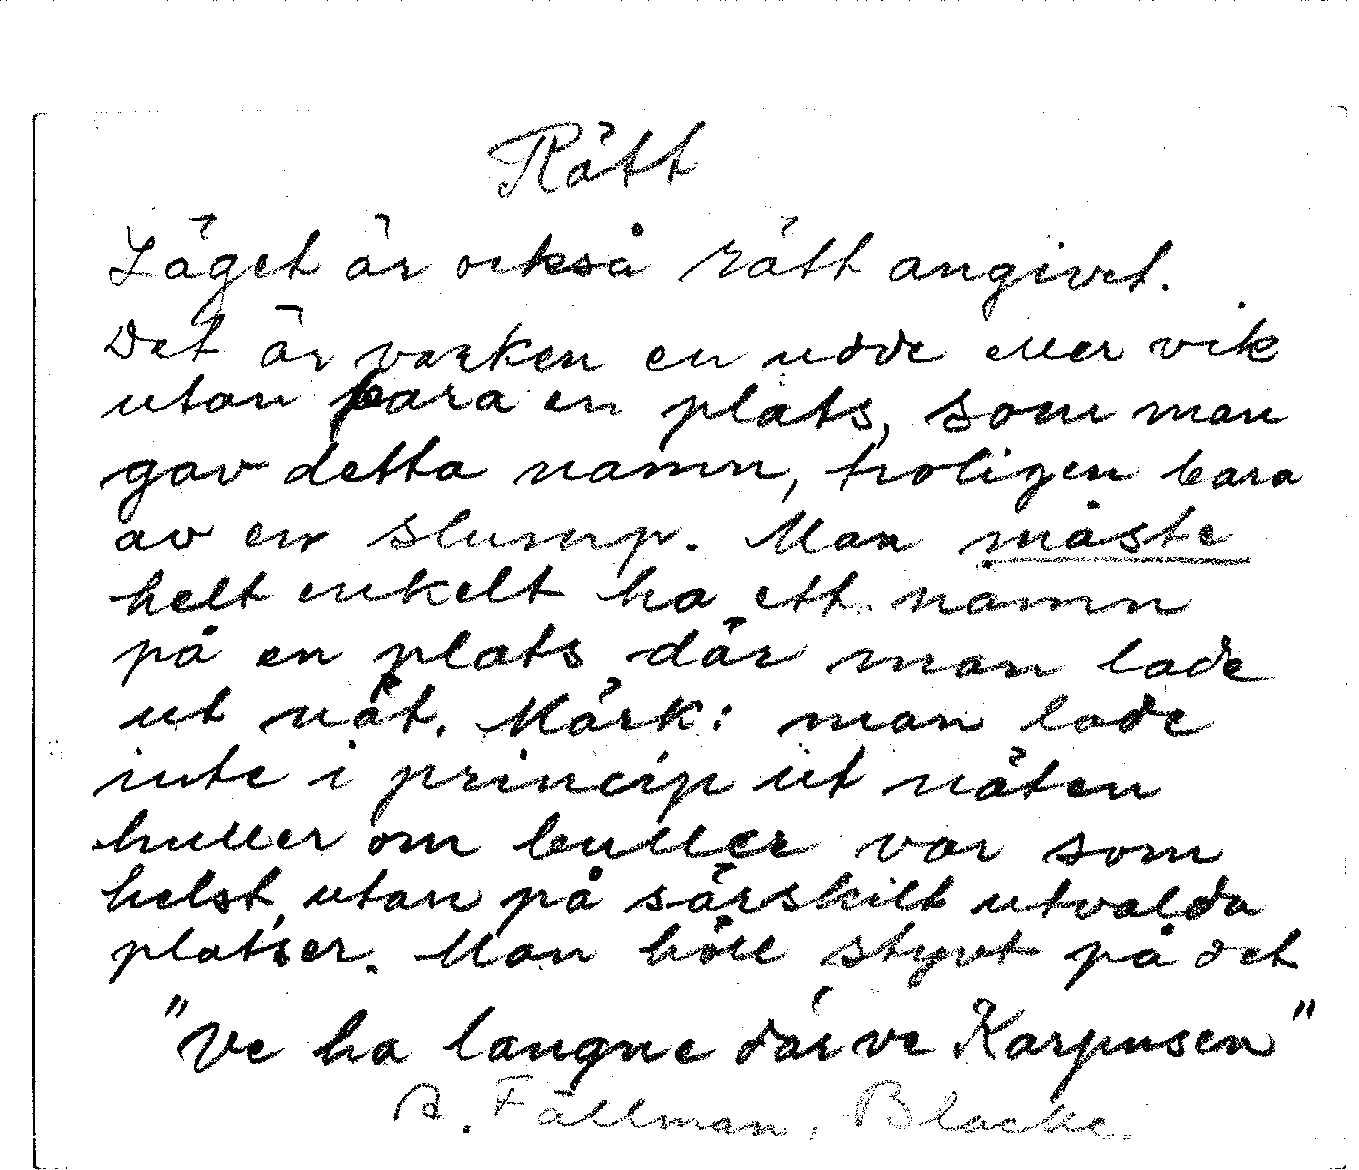 Rätt
Läget är också rätt angivet.
Det är varken en udde eller vik
utan bara en plats, som man
gav detta namn, troligen bara
av en slump. Man måste
helt enkelt ha ett namn
på en plats där man lade
ut nät. Märk: man lade
inte i princip ut näten
huller om buller var som
helst, utan på särskilt utvalda
platser. Man höll styvt på det
"Ve ha langne där ve Karpusen"
A. Fällman, Blacke.